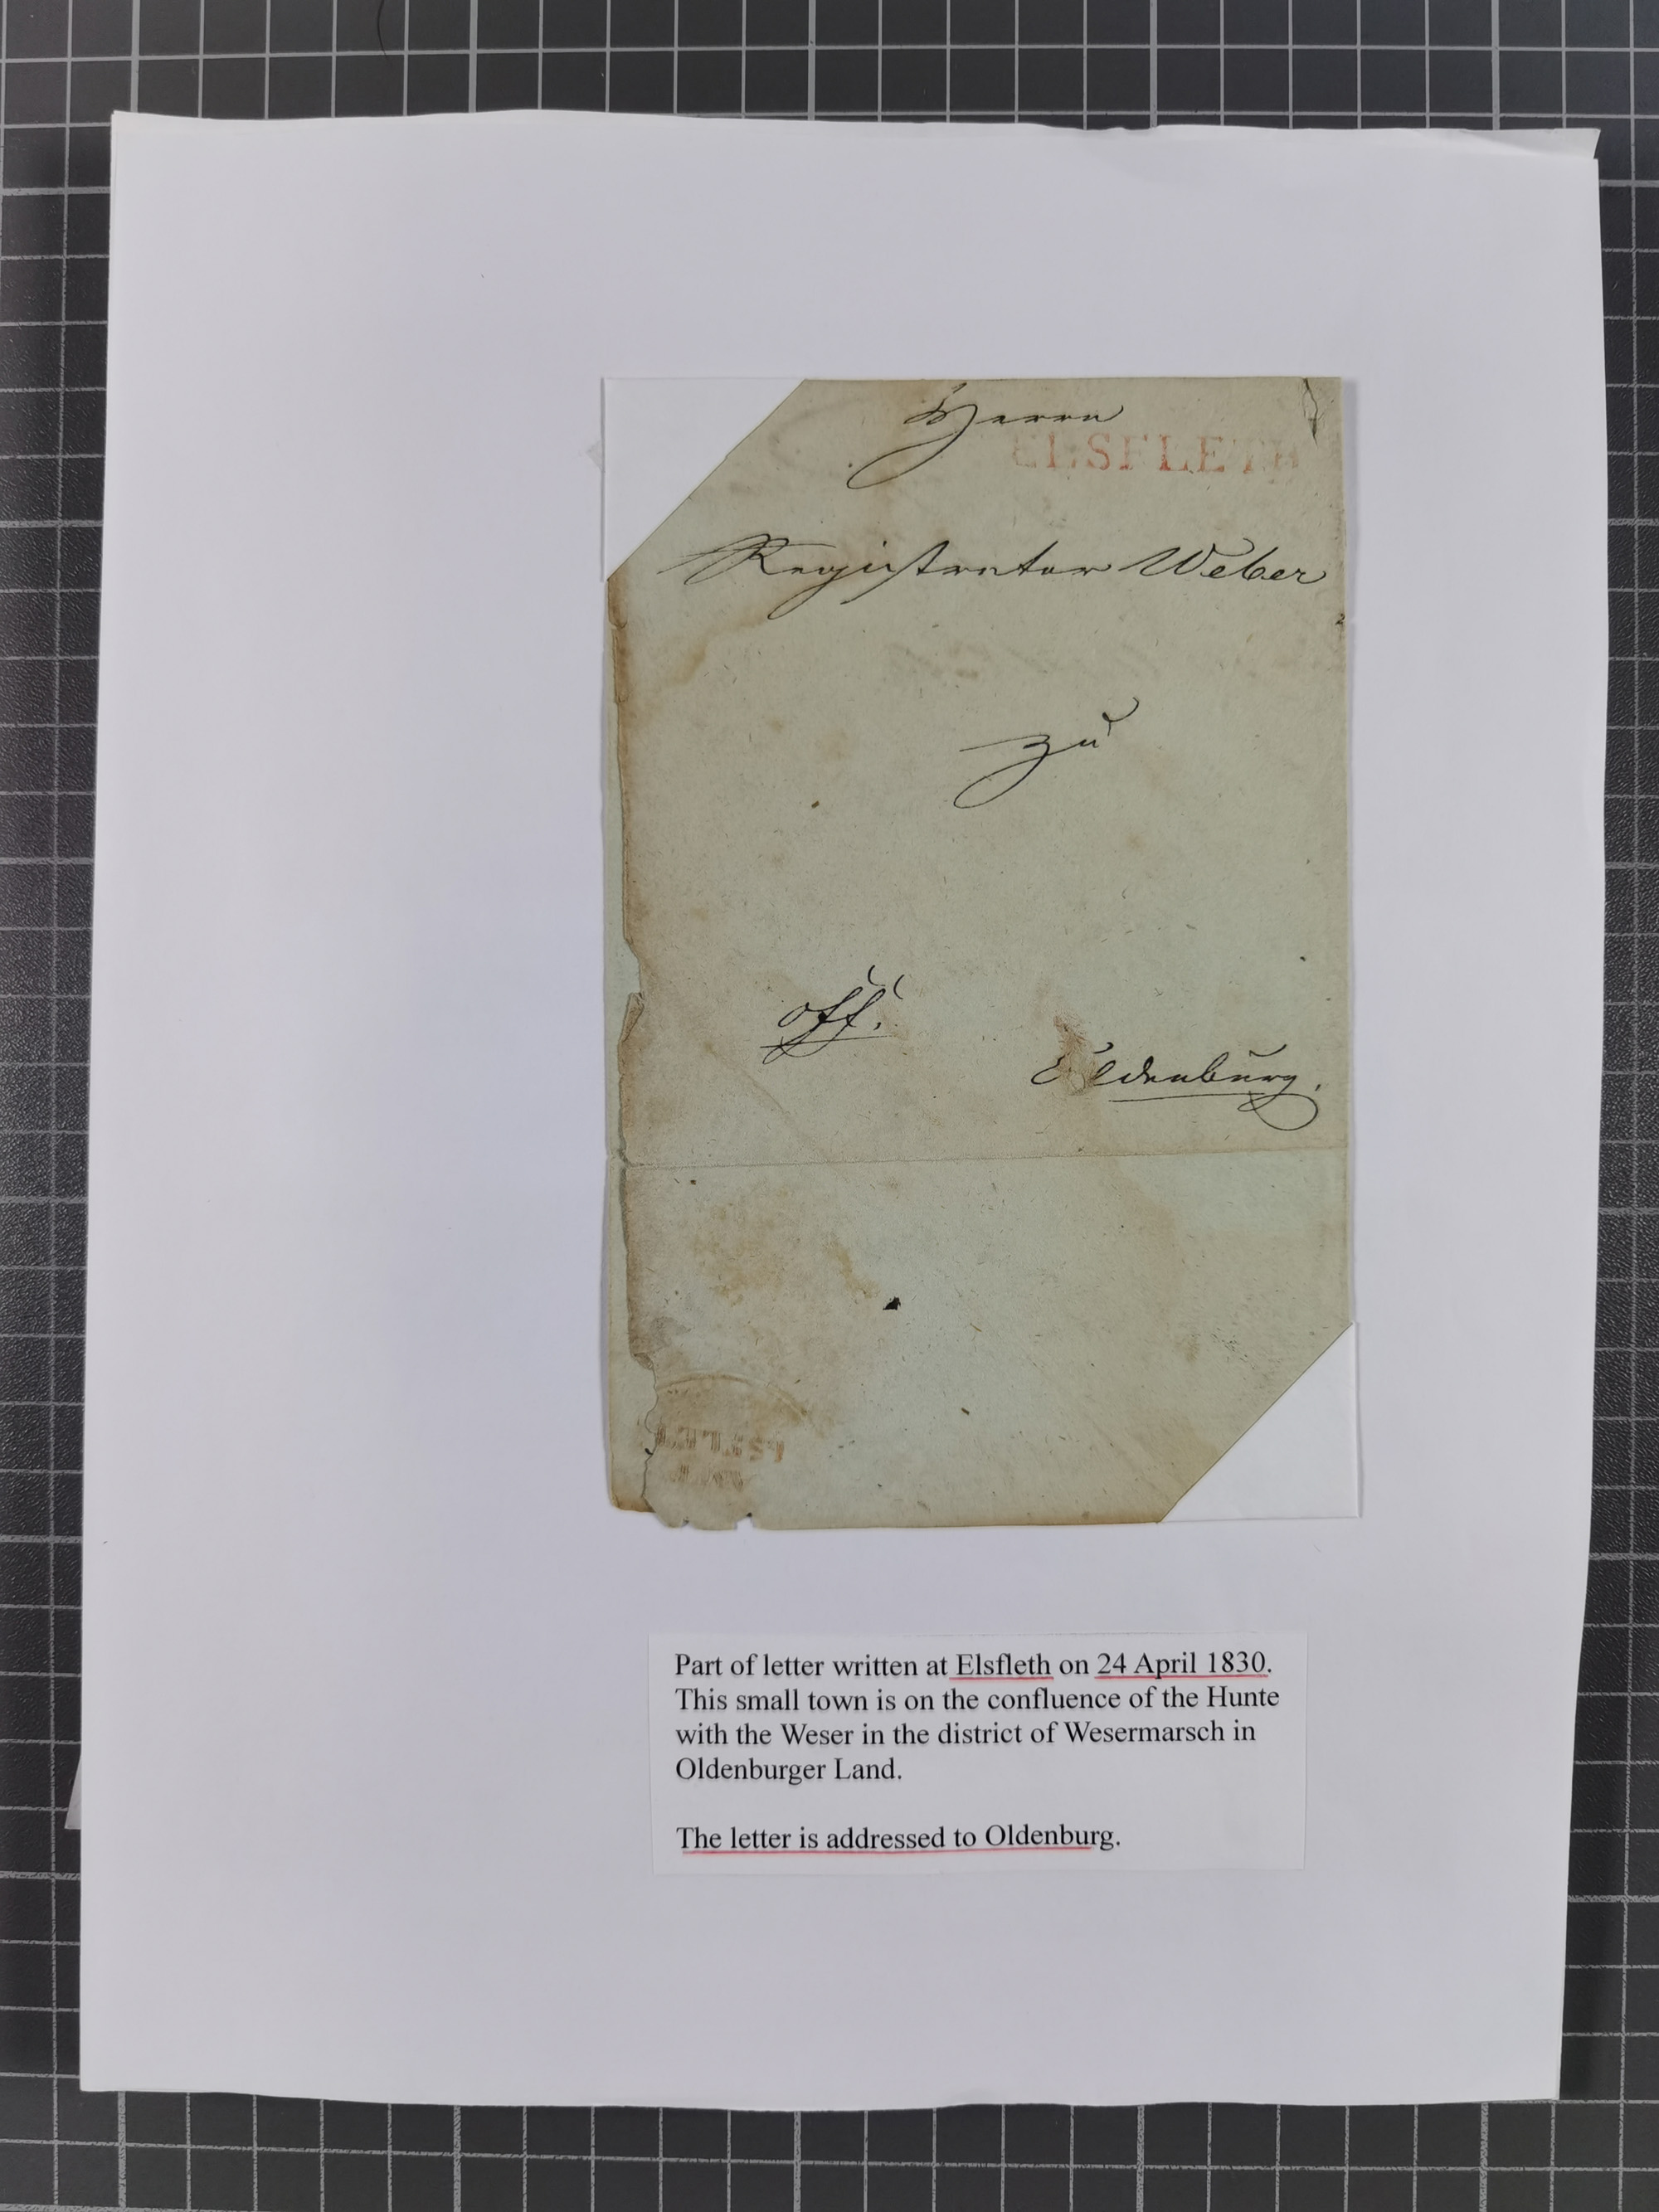 Herrn
ELSFLETH
Registrator Weber
zu
off.
Oldenburg.
Part of letter written at Elsfleth on 24 April 1830.
This small town is on the confluence of the Hunte
with the Weser in the district of Wesermarsch in
Oldenburger Land.
The letter is addressed to Oldenburg.